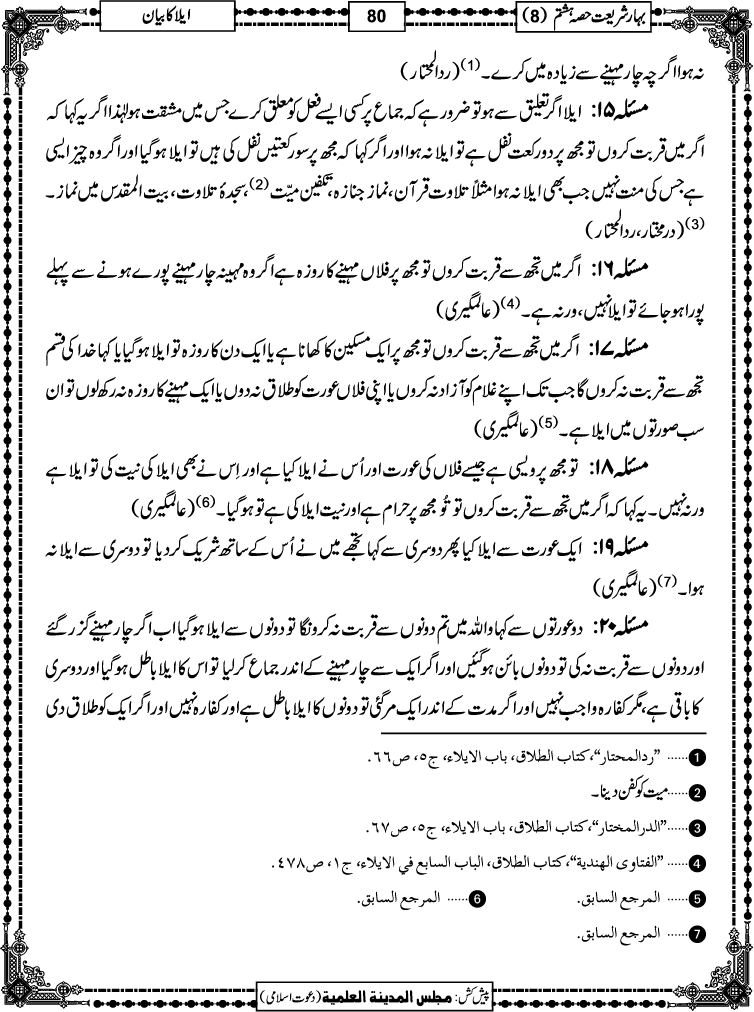 بہار شریعت حصہ ہشتم (8)
80
ایلا کا بیان
نہ ہوا اگرچہ چار مہینے سے زیادہ میں کرے۔(1) (ردالمحتار)
مسئلہ ۱۵: ایلا اگر تعلیق سے ہو تو ضرور ہے کہ جماع پر کسی ایسے فعل کو معلق کرے جس میں مشقت ہو لہٰذا اگر یہ کہا کہ
اگر میں قربت کروں تو مجھ پر دو رکعت نفل ہے تو ایلا نہ ہوا اور اگر کہا کہ مجھ پر سو رکعتیں نفل کی ہیں تو ایلا ہوگیا اور اگر وہ چیز ایسی
ہے جس کی منت نہیں جب بھی ایلا نہ ہوا مثلاً تلاوت قرآن، نماز جنازہ، تکفین میّت(2)، سجدۂ تلاوت، بیت المقدس میں نماز۔
(3) (درمختار، ردالمحتار)
مسئلہ ۱۶: اگر میں تجھ سے قربت کروں تو مجھ پر فلاں مہینے کا روزہ ہے اگر وہ مہینہ چار مہینے پورے ہونے سے پہلے
پورا ہو جائے تو ایلا نہیں، ورنہ ہے۔(4) (عالمگیری)
مسئلہ ۱۷: اگر میں تجھ سے قربت کروں تو مجھ پر ایک مسکین کا کھانا ہے یا ایک دن کا روزہ تو ایلا ہوگیا یا کہا خدا کی قسم
تجھ سے قربت نہ کروں گا جب تک اپنے غلام کو آزاد نہ کروں یا اپنی فلاں عورت کو طلاق نہ دوں یا ایک مہینے کا روزہ نہ رکھ لوں تو ان
سب صورتوں میں ایلا ہے۔(5) (عالمگیری)
مسئلہ ۱۸: تو مجھ پر ویسی ہے جیسے فلاں کی عورت اور اُس نے ایلا کیا ہے اور اِس نے بھی ایلا کی نیت کی تو ایلا ہے
ورنہ نہیں۔ یہ کہا کہ اگر میں تجھ سے قربت کروں تو تُو مجھ پر حرام ہے اور نیت ایلا کی ہے تو ہوگیا۔(6) (عالمگیری)
مسئلہ ۱۹: ایک عورت سے ایلا کیا پھر دوسری سے کہا تجھے میں نے اُس کے ساتھ شریک کر دیا تو دوسری سے ایلا نہ
ہوا۔(7) (عالمگیری)
مسئلہ ۲۰: دو عورتوں سے کہا واللہ میں تم دونوں سے قربت نہ کرونگا تو دونوں سے ایلا ہوگیا اب اگر چار مہینے گزر گئے
اور دونوں سے قربت نہ کی تو دونوں بائن ہوگئیں اور اگر ایک سے چار مہینے کے اندر جماع کر لیا تو اس کا ایلا باطل ہوگیا اور دوسری
کا باقی ہے، مگر کفارہ واجب نہیں اور اگر مدت کے اندر ایک مرگئی تو دونوں کا ایلا باطل ہے اور کفارہ نہیں اور اگر ایک کو طلاق دی
1 ...... ”ردالمحتار“، کتاب الطلاق، باب الایلاء، ج۵، ص۶۶.
2 ...... میت کو کفن دینا۔
3 ...... ”الدرالمختار“، کتاب الطلاق، باب الایلاء، ج۵، ص۶۷.
4 ...... ”الفتاوی الھندیة“، کتاب الطلاق، الباب السابع في الایلاء، ج۱، ص۴۷۸.
5 ...... المرجع السابق. 6 ...... المرجع السابق.
7 ...... المرجع السابق.
پیش کش: مجلس المدينة العلمية (دعوت اسلامی)